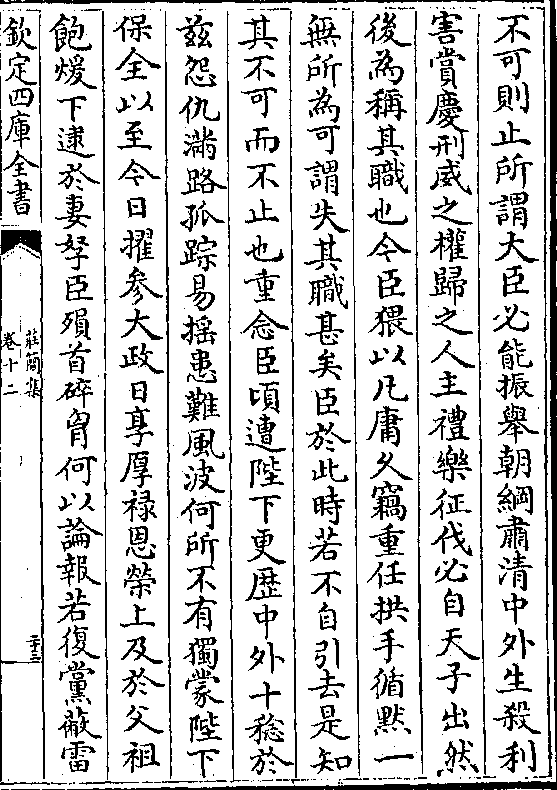 不可則止所謂大臣必能振舉朝綱肅清中外生殺利
害賞慶刑威之權歸之人主禮樂征伐必自天子出然
後為稱其職也今臣猥以凡庸久竊重任拱手循黙一
無所為可謂失其職甚矣臣於此時若不自引去是知
其不可而不止也重念臣頃遭陛下更歴中外十稔於
兹怨仇滿路孤踪易揺患難風波何所不有獨蒙陛下
保全以至今日擢參大政日享厚禄恩榮上及於父祖
飽煖下逮於妻孥臣殞首碎胷何以論報若復黨蔽雷
欽定四庫全書
莊簡集
卷十二
二十三